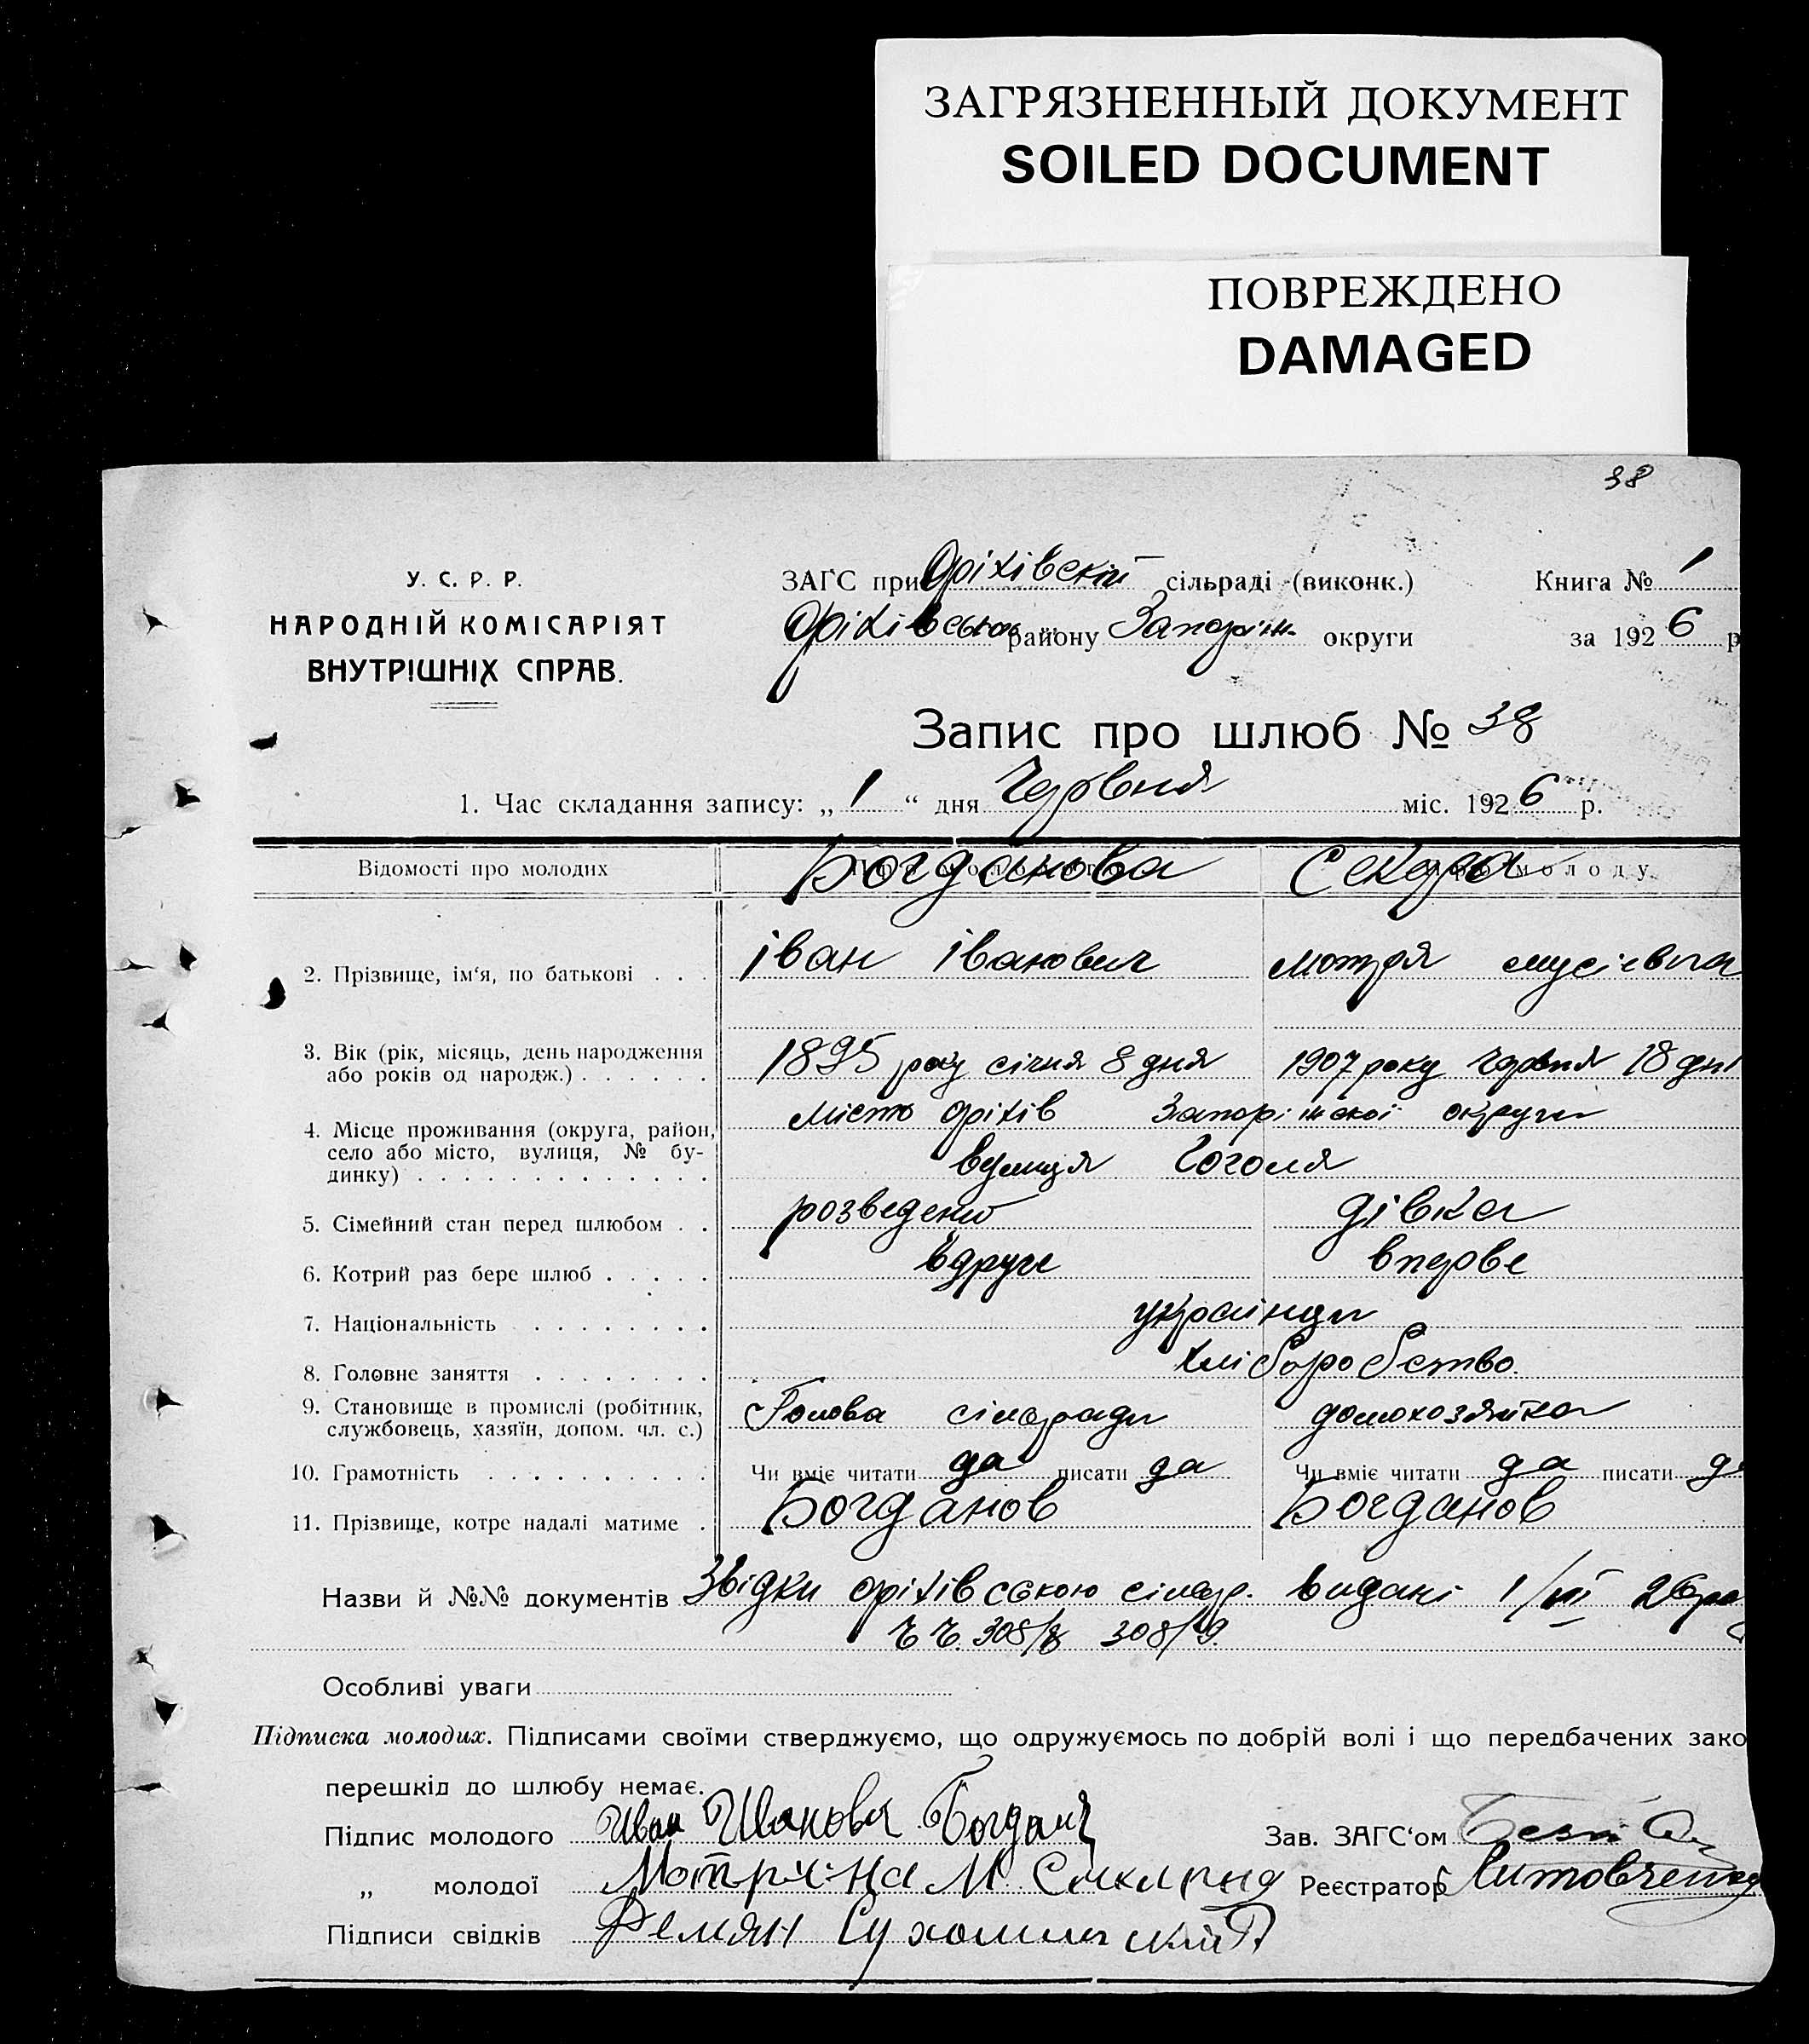 ЗАГРЯЗНЕННЫЙ ДОКУМЕНТ
SOILED DOCUMENT
ПОВРЕЖДЕНО
DAMAGED
38
У. С. Р. Р.
НАРОДНІЙ КОМІСАРІЯТ
ВНУТРІШНІХ СПРАВ.
ЗАГС при Оріхівскій сільраді (виконк.) Книга № 1
Оріхівського району Запоріж. округи за 1926 р
Запис про шлюб № 38
1. Час складання запису: „ 1 “ дня Червня міс. 1926 р.
Відомості про молодих Богданова молоду
2. Прізвище, ім‘я, по батькові . . . Іван Іванович Мотря Мусієвна
3. Вік (рік, місяць, день народження 1895 року січня 8 дня 1907 року Червня 18 дня
або років од народж.) . . . . . .
4. Місце проживання (округа, район, Місто Оріхів Запоріжскоі округи
село або місто, вулиця, № бу-
динку) . . . . . . . . . . . . . вулиця Гоголя
5. Сімейний стан перед шлюбом . . розведений дівка
6. Котрий раз бере шлюб . . . . . вдруге вперве
7. Національність . . . . . . . . українци
8. Головне заняття . . . . . . . . хліборобство.
9. Становище в промислі (робітник, Голова сільради домохозяйка
службовець, хазяїн, допом. чл. с.)
10. Грамотність . . . . . . . . . . Чи вміє читати да писати да Чи вміє читати да писати д
11. Прізвище, котре надалі матиме . Богданов Богданов
Назви й №№ документів Звідки оріхівською сільр. видані 1/VI 26 ро
308/8 308/9.
Особливі уваги
Підписка молодих. Підписами своїми стверджуємо, що одружуємось по добрій волі і що передбачених зако
перешкід до шлюбу немає.
Підпис молодого Иван Иванович Богданов Зав. ЗАГС‘ом
„ молодої Мотряна М Реєстратор Литовченко
Підписи свідків Демян Сухомлинский